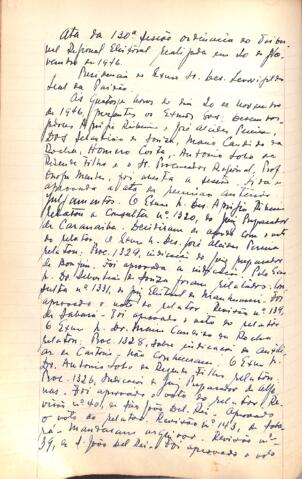 Ata da 130ª sessão ordinaria do Tribu-
nal Regional Eleitoral realizada em 20 de No-
vembro de 1946.
Presidencia do Exmo Sr. Des.
Leal da Paixão
As quatorze horas do dia 20 de novembro
de 1946, presentes os Exmos Srs. Desembar-
gadores Aprigio Ribeiro, José Alcides Pereira,
Drs. de Souza, Mario Candido da
Rocha, Homero Costa, Antonio João de
Rezende Filho e o Sr. Procurador Regional, Prof.
Onofre Mendes, foi aberta a sessão, lida e
aprovada a ata da reunião anterior.
Julgamentos. O Exmo Sr. des. Aprigio Ribeiro
relatou a Consulta nº 1320, do Juiz Preparador
de Carandaí. Decidiram de acordo com o voto
do relator. O Exmo Sr. des. José Alcides Pereira
relatou. Proc. 1329, indicação do juiz preparador
de Foi aprovada a indicação. Pelo Exmo
Sr. Dr. de Souza foram relatados: Con-
sulta nº 1331, do Juiz Eleitoral de Manhuassú. Foi
aprovado o voto do relator. Revisão nº 139,
de Sabará. Foi aprovado o voto do relator
O Exmo Sr. dr. Mario Candido da Rocha
relatou: Proc. 1328, sobre indicação de auxili-
ar de Cartorio. Não conheceram. O Exmo Sr.
Dr. Antonio João de Rezende Filho relatou:
Proc. 1326, Indicação de Juiz Preparador de Alfe-
nas. Foi aprovado o voto do relator. Re-
visão nº 40, de São João del Rei. Aprovado
o voto do relator. Revisão nº 143, de
Mandaram arquivar. Revisão nº
39, de S. João del Rei. Foi aprovado o voto